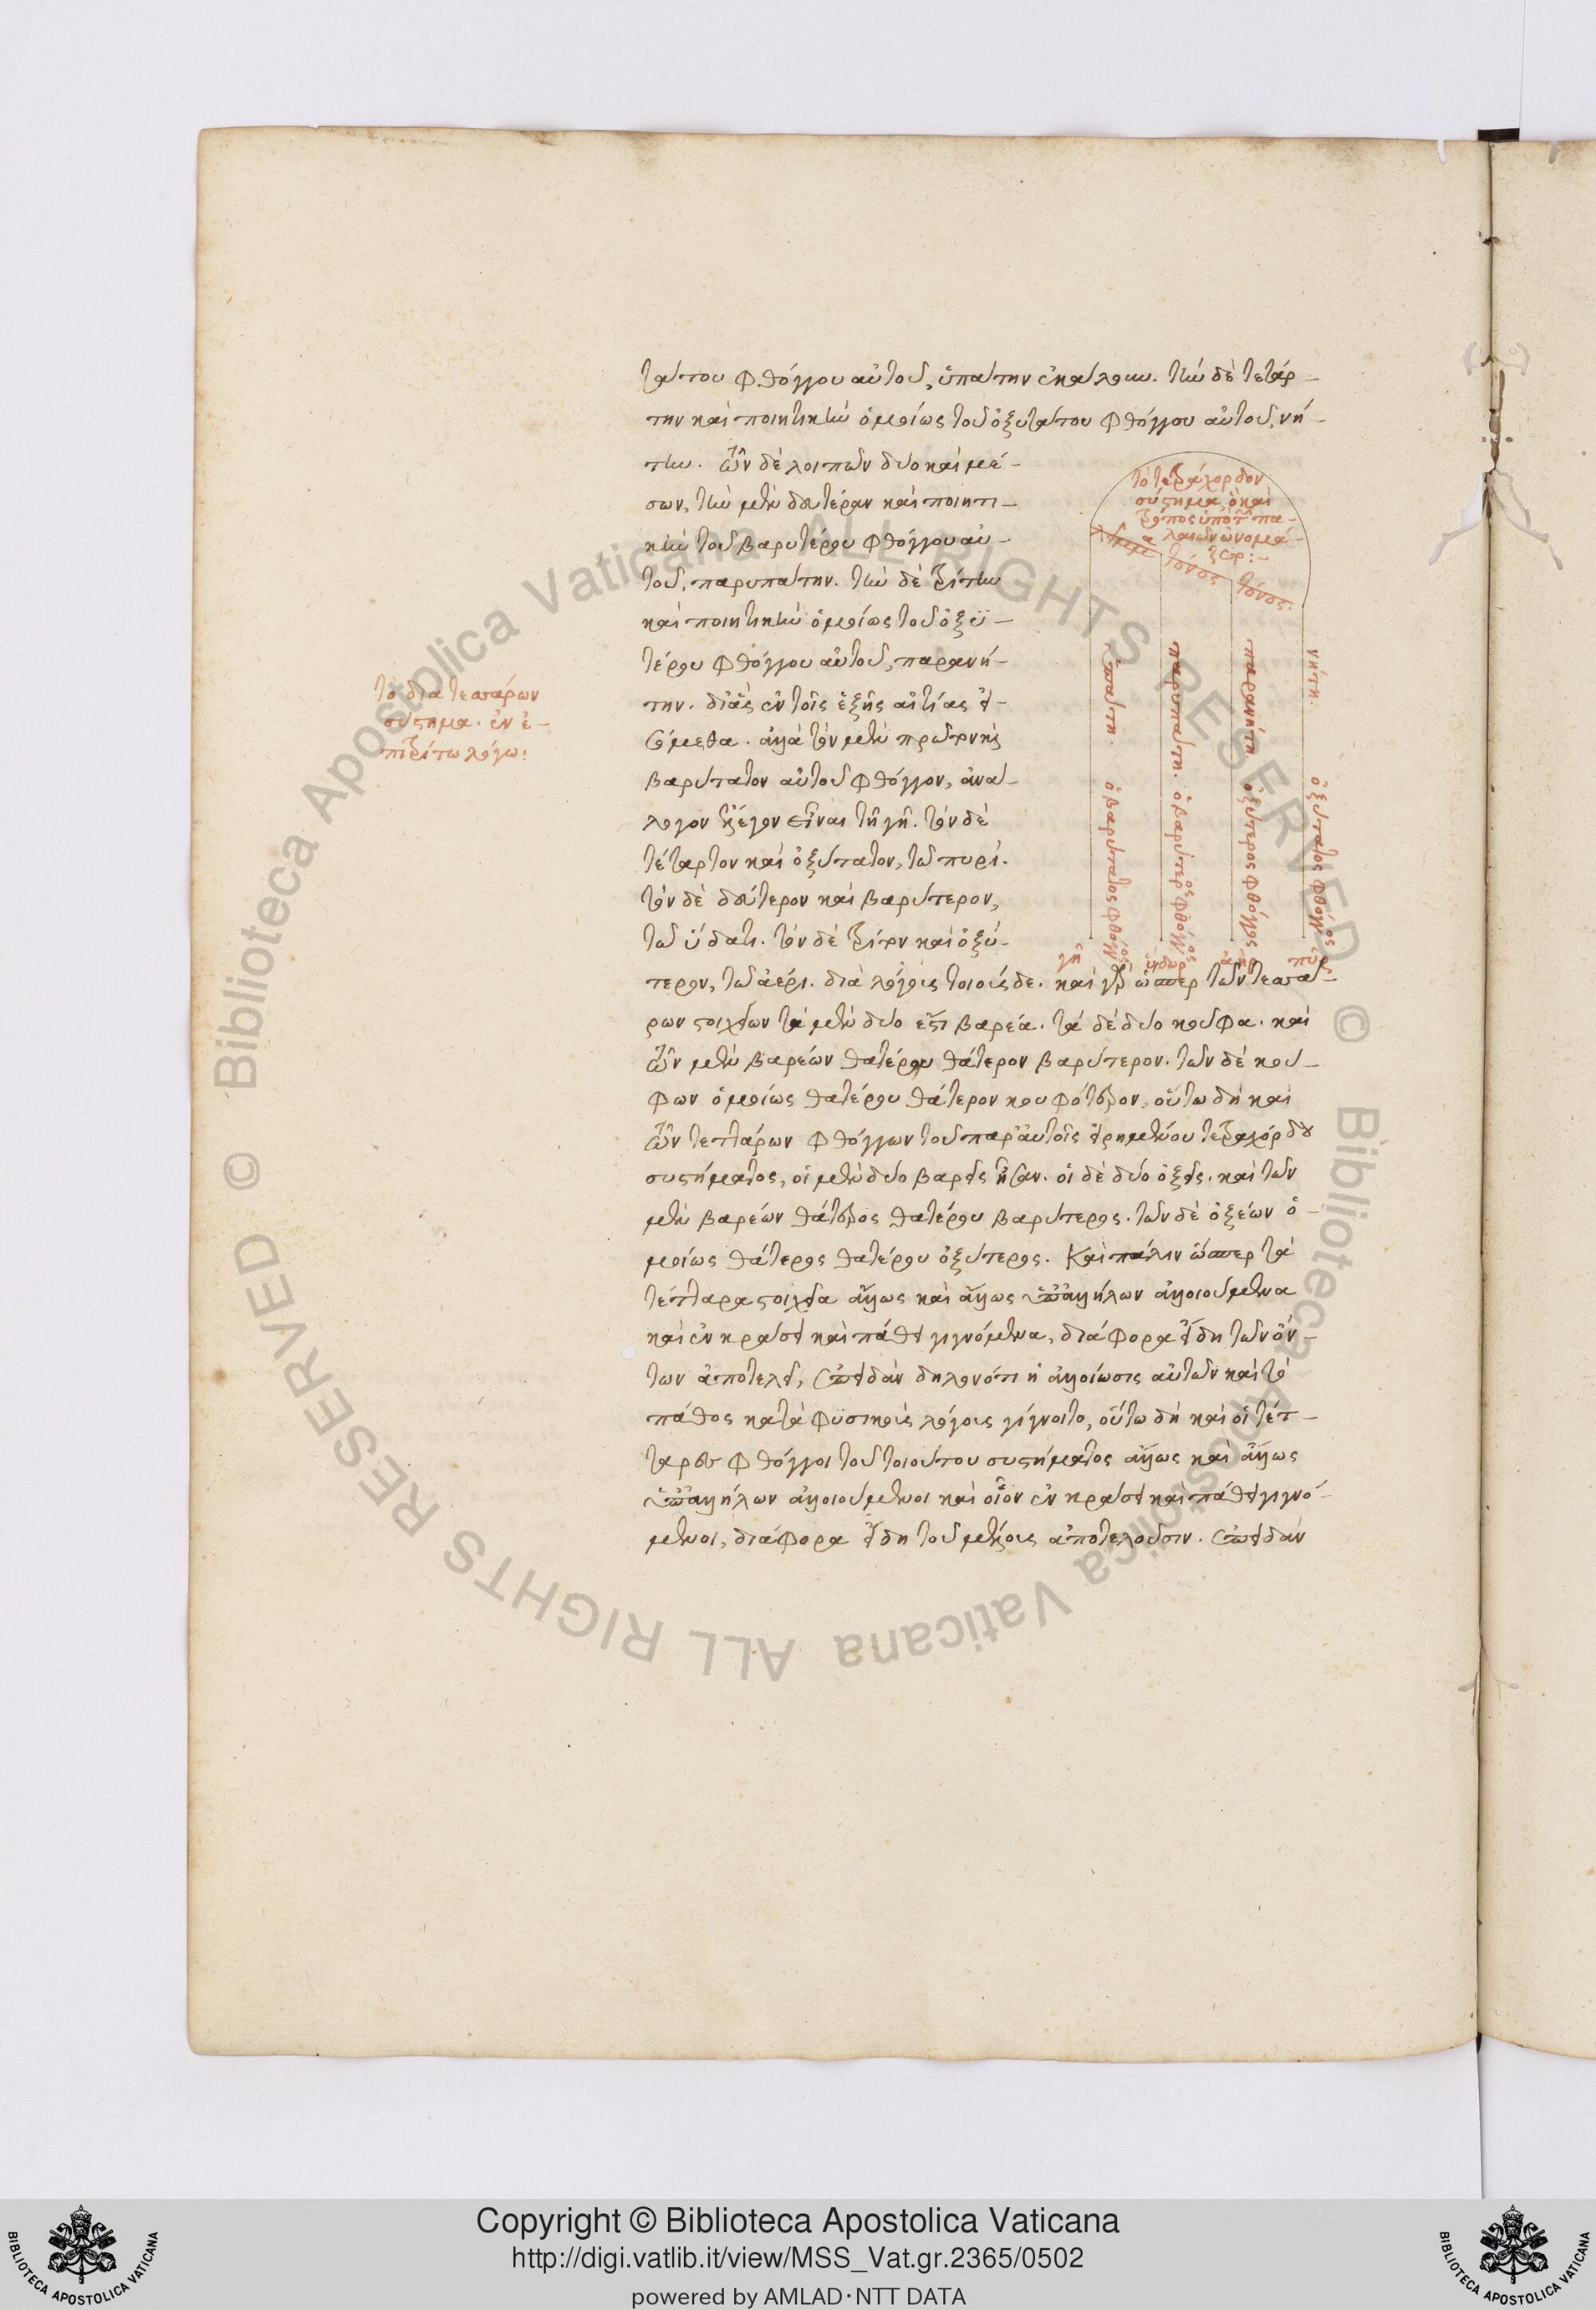 τάτου φθόγγου αὐτοῦ, ὑπάτην ἐκάλουν. τὴν δὲ τετάρ-
την καὶ ποιητικὴν ὁμοίως τοῦ ὀξυτάτου φθόγγου αὐτοῦ, νή-
την. τῶν δὲ λοιπῶν δύο καὶ μέ-
σων, τὴν μὲν δευτέραν καὶ ποιητι-
κὴν τοῦ βαρυτέρου φθόγγου αὐ-
τοῦ, παρυπάτην. τὴν δὲ τρίτην
καὶ ποιητικὴν ὁμοίως τοῦ ὀξυ-
τέρου φθόγγου αὐτοῦ, παρανή-
την. δι' ἃς ἐν τοῖς ἑξῆς αἰτίας εἰ-
σόμεθα. ἀλλὰ τὸν μὲν πρῶτον καὶ
βαρύτατον αὐτοῦ φθόγγον, ἀνά-
λογον ἔλεγον εἶναι τῇ γῇ. τὸν δὲ
τέταρτον καὶ ὀξύτατον, τῷ πυρί.
τὸν δὲ δεύτερον καὶ βαρύτερον,
τῷ ὕδατι. τὸν δὲ τρίτον καὶ ὀξύ-
τερον, τῷ ἀέρι. διὰ λόγους τοιούσδε. καὶ γὰρ ὥσπερ τῶν τεσσά-
ρων στοιχείων τὰ μὲν δύο ἐστὶ βαρέα. τὰ δὲ δύο κοῦφα. καὶ
τῶν μὲν βαρέων θατέρου θάτερον βαρύτερον. τῶν δὲ κού-
φων ὁμοίως θατέρου θάτερον κουφότερον, οὕτω δὴ καὶ
τῶν τεττάρων φθόγγων τοῦ παρ' αὐτοῖς εἰρημένου τετραχόρδου
συστήματος, οἱ μὲν δύο βαρεῖς ἦσαν. οἱ δὲ δύο ὀξεῖς. καὶ τῶν
μὲν βαρέων θάτερος θατέρου βαρύτερος. τῶν δὲ ὀξέων ὁ-
μοίως θάτερος θατέρου ὀξύτερος. Καὶ πάλιν ὥσπερ τὰ
τέτταρα στοιχεῖα ἄλλως καὶ ἄλλως ὑπ' ἀλλήλων ἀλλοιούμενα
καὶ ἐν κράσει καὶ πάθει γιγνόμενα, διάφορα εἴδη τῶν ὄν-
των ἀποτελεῖ, ἐπειδὰν δηλονότι ἡ ἀλλοίωσις αὐτῶν καὶ τὸ
πάθος κατὰ φυσικοὺς λόγους γίγνοιτο, οὕτω δὴ καὶ οἱ τέτ-
ταρες φθόγγοι τοῦ τοιούτου συστήματος ἄλλως καὶ ἄλλως
ὑπ' ἀλλήλων ἀλλοιούμενοι καὶ οἷον ἐν κράσει καὶ πάθει γιγνό-
μενοι, διάφορα εἴδη τοῦ μέλους ἀποτελοῦσιν. ἐπειδὰν
τὸ διὰ τεσσάρων
σύστημα. ἐν ἐ-
πιτρίτῳ λόγῳ:
τὸ τετράχορδον
σύστημα, ὃ καὶ
τρόπος ὑπὸ τῶν πα-
λαιῶν ὠνομά-
ζετο:-
λεῖμμα
τόνος
τόνος.
ὑπάτη. ὁ βαρύτατος φθόγγος
παρυπάτη. ὁ βαρύτερος φθόγγος
παρανήτη. ὀξύτερος φθόγγος
νήτη. ὀξύτατος φθόγγος
γῆ
ὕδωρ
ἀήρ
πῦρ
Copyright © Biblioteca Apostolica Vaticana
http://digi.vatlib.it/view/MSS_Vat.gr.2365/0502
powered by AMLAD·NTT DATA
BIBLIOTECA APOSTOLICA VATICANA
BIBLIOTECA APOSTOLICA VATICANA
© Biblioteca Apostolica Vaticana ALL RIGHTS RESERVED
© Biblioteca Apostolica Vaticana ALL RIGHTS RESERVED